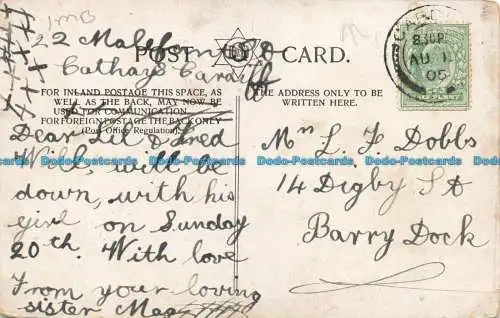 JMB
22
Cathays Cardiff
POST CARD.
FOR INLAND POSTAGE THIS SPACE, AS
WELL AS THE BACK, MAY NOW BE
USED FOR COMMUNICATION.
FOR FOREIGN POSTAGE THE BACK ONLY
(Post Office Regulation).
Dear Lil & Fred
Will, will be
down, with his
girl on Sunday
20th. With love
From your loving
sister Meg
THE ADDRESS ONLY TO BE
WRITTEN HERE.
8.30 PM
AU 1
05
Mrs L. F. Dobbs
14 Digby St
Barry Dock
Dodo-Postcards Dodo-Postcards Dodo-Postcards Dodo-Postcards Dodo-Postcards